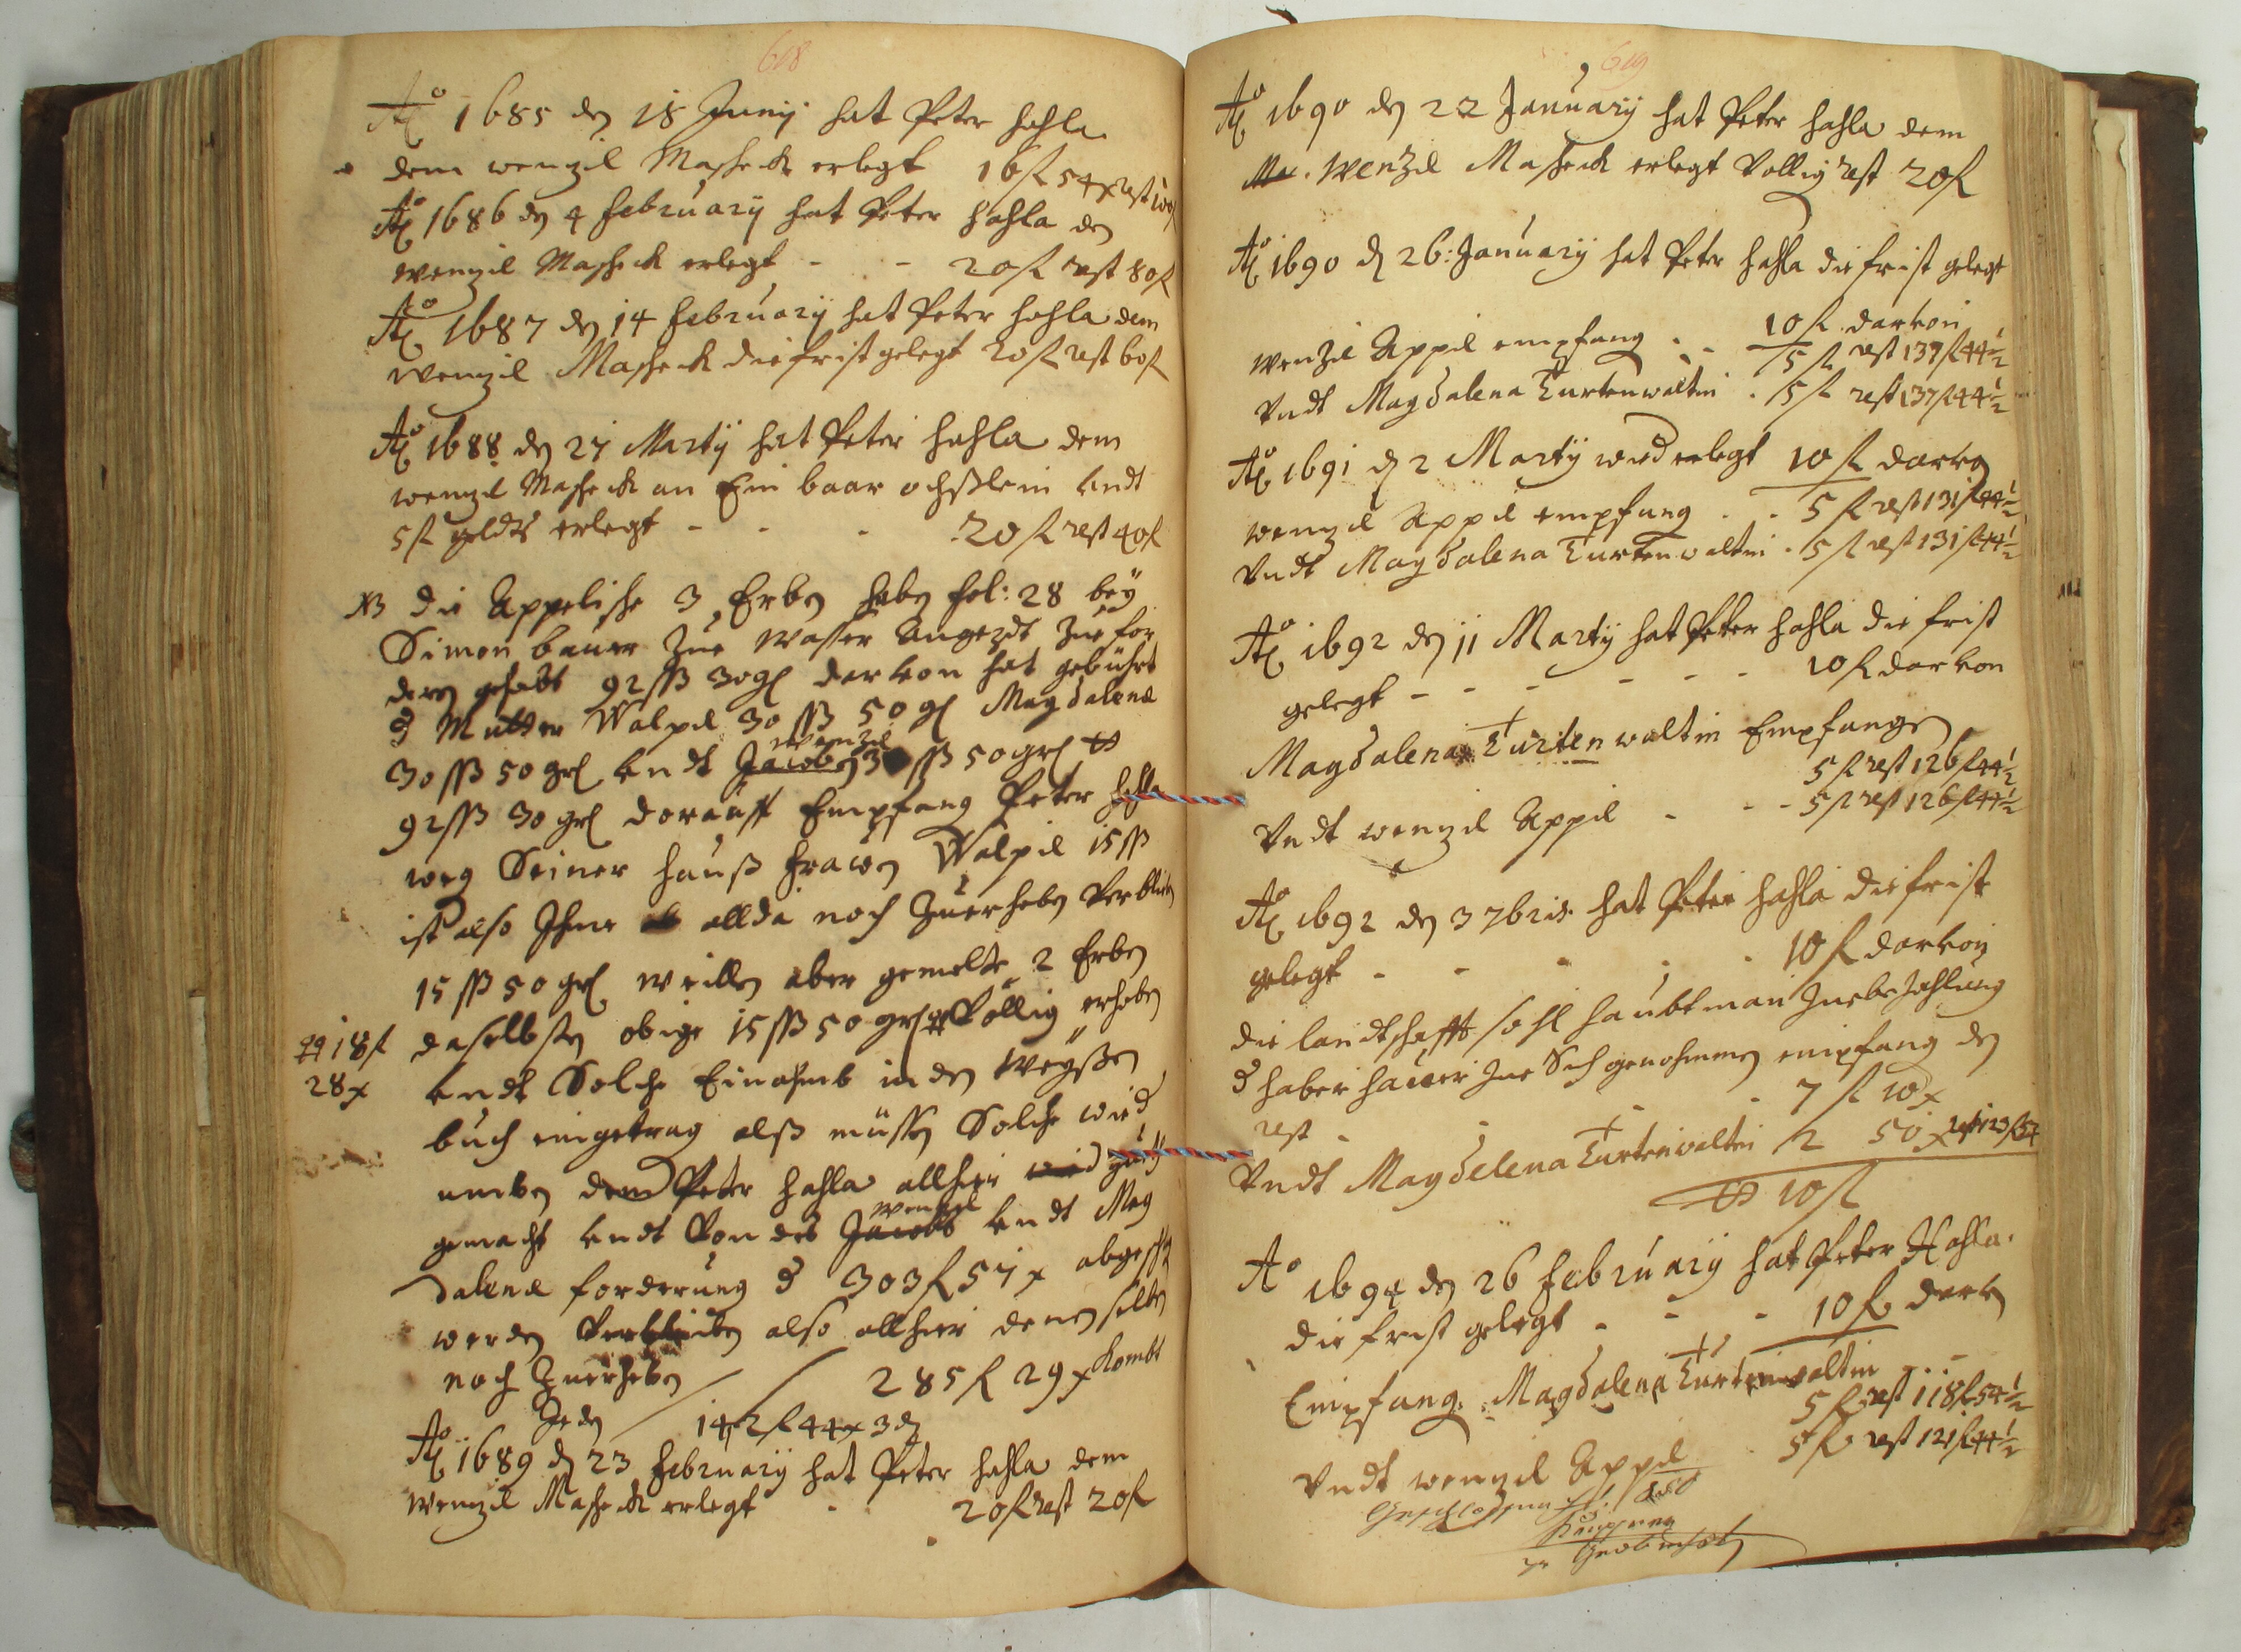 608
Ao 1685 den 18 Junij hat Peter Hahla
dem Wenzil Mascheck erlegt 16 fl 54 x rest 100 fl
Ao 1686 den 4 February hat Peter Hahla den
Wenzil Mascheck erlegt - - 20 fl rest 80 fl
Ao 1687 den 14 February hat Peter Hahla dem
Wenzil Mascheck die frist gelegt 20 fl rest 60 fl
Ao 1688 den 27 Martij hat Peter Hahla dem
Wenzil Mascheck an Ein baar ochßlein undt
5 fl geldts erlegt - - - 20 fl rest 40 fl
NB die Appelische 3 Erben haben fol: 28 bey
Simon bauer Zue Wasser Zue for
dern gehabt 92 ßß 30 gl darvon hat gebührt
d Mutter Walpil 30 ßß 50 gl Magdalena
30 ßß 50 grl undt Jacoben Wenzil 30 ßß 50 grl
92 ßß 30 grl dorauff Empfang Peter Hahla
weg Seiner hauß frawen Walpil 15 ßß
ist also Ihme allda noch Zuerheben Verblieben
15 ßß 50 grl Weillen aber gemelte 2 Erben
daselbsten obige 15 ßß 50 grl Völlig erhoben
18 fl
28 x
undt Solche Einahmb in den Weyßen
buch eingetrag alß müssen Solche wied
umben dem Peter Hahla allhier wied gutt
gemacht undt Von des Jacobs Wenzel undt Mag
dalena forderung d 303 fl 57 x
werden Verbleiben also allhier denen selben
noch Zuerheben 285 fl 29 x Kombt
Jeden 142 fl 44 x 3 d
Ao 1689 d 23 February hat Peter Hahla dem
Wenzil Mascheck erlegt - 20 fl rest 20 fl
619
Ao 1690 den 22 January hat Peter Hahla dem
Wenzil Mascheck erlegt Vollig rest 20 fl
Ao 1690 d 26: January hat Peter Hahla die frist gelegt
10 fl darvon
Wenzil Appil empfang - - 5 fl rest 137 fl 44 1/2
Undt Magdalena Turtenwaltin . 5 fl rest 137 fl 44 1/2
Ao 1691 d 2 Martij wied erlegt 10 fl darvon
Wenzil Appil empfang - - 5 fl rest 131 fl 44 1/2
Undt Magdalena Turtenwaltin . 5 fl rest 131 fl 44 1/2
Ao 1692 den 11 Martij hat Peter Hahla die frist
gelegt - - - - - - 10 fl darvon
Magdalena Turtenwaltin Empfangen
5 fl rest 126 fl 44 1/2
Undt Wenzil Appil - - - 5 fl rest 126 fl 44 1/2
Ao 1692 den 3 7bris hat Peter Hahla die frist
gelegt - - - - - 10 fl darvon
die landtschafft sohl haubtman Zuebezahlung
d haber hauer Zue Sich genohmmen empfang den
rest - - - 7 fl 10 x
Undt Magdelena Turtenwaltin 2 50 x rest 123 fl 54
10 fl
Ao 1694 den 26 February hat Peter Hahla
die frist gelegt - - - 10 fl darvon
Empfang Magdalena Turtenwaltin - -
5 fl rest 118 fl 54 1/2
Undt Wenzil Appil 5 fl rest 121 fl 44 1/2